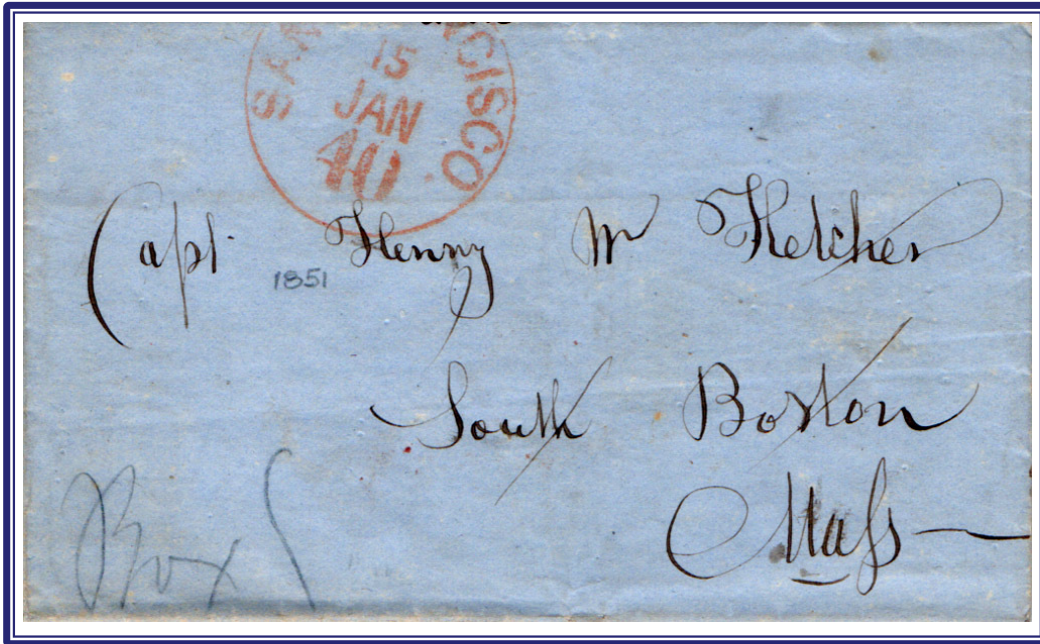 SAN CISCO
15
JAN
40
Capt Henry W Fletcher
1851
South Boston
Mass
Box